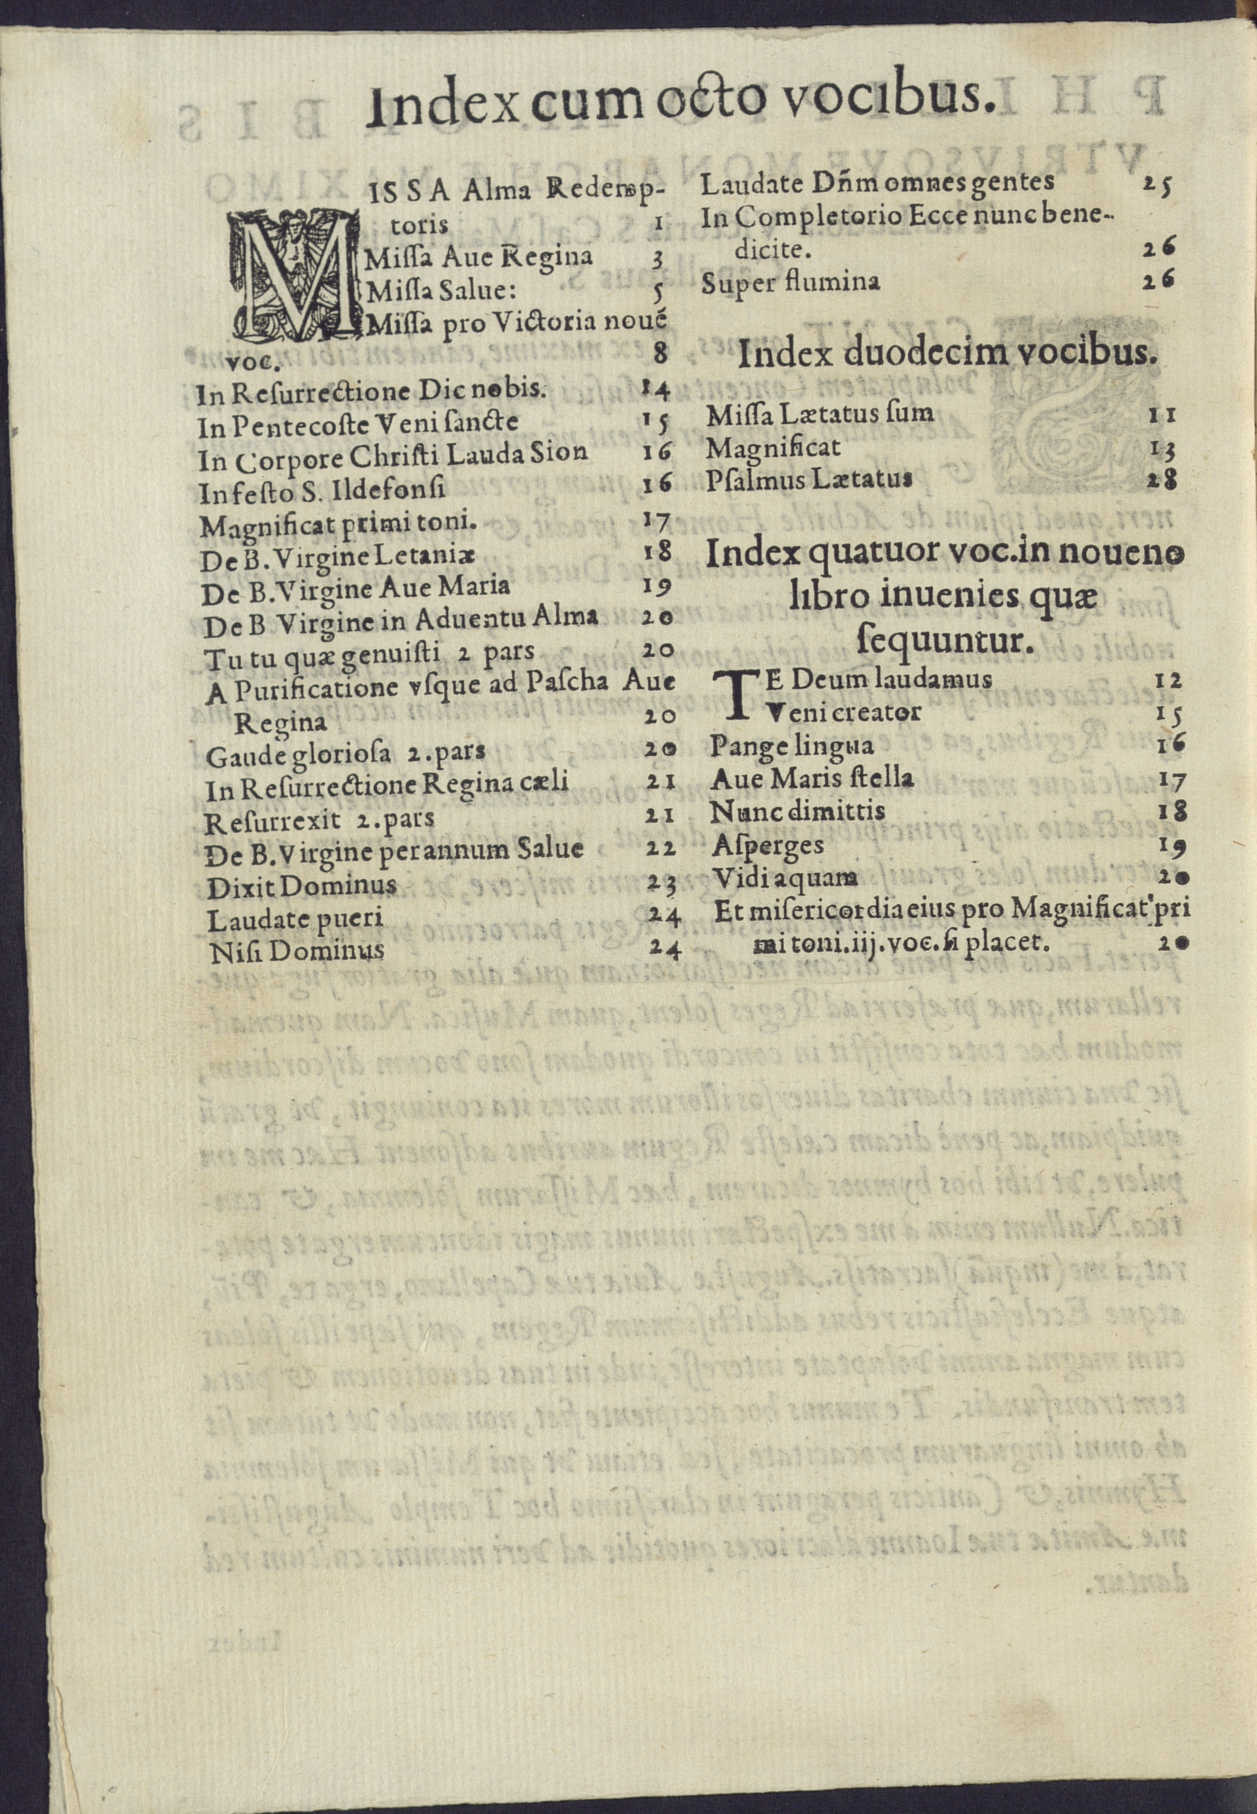 Index cum octo vocibus.
MISSA Alma Redemp-
toris 1
Missa Aue Regina 3
Missa Salue: 5
Missa pro Victoria noué
voc. 8
In Resurrectione Dic nobis. 14
In Pentecoste Veni sancte 15
In Corpore Christi Lauda Sion 16
In festo S. Ildefonsi 16
Magnificat primi toni. 17
De B. Virgine Letaniæ 18
De B. Virgine Aue Maria 19
De B Virgine in Aduentu Alma 20
Tu tu quæ genuisti 2 pars 20
A Purificatione vsque ad Pascha Aue
Regina 20
Gaude gloriosa 2. pars 20
In Resurrectione Regina cæli 21
Resurrexit 2. pars 21
De B. Virgine per annum Salue 22
Dixit Dominus 23
Laudate pueri 24
Nisi Dominus 24
Laudate Dñm omnes gentes 25
In Completorio Ecce nunc bene-
dicite. 26
Super flumina 26
Index duodecim vocibus.
Missa Lætatus sum 11
Magnificat 13
Psalmus Lætatus 28
Index quatuor voc. in noueno
libro inuenies quæ
sequuntur.
TE Deum laudamus 12
Veni creator 15
Pange lingua 16
Aue Maris stella 17
Nunc dimittis 18
Asperges 19
Vidi aquam 20
Et misericordia eius pro Magnificat pri
mi toni. iij. voc. si placet. 20